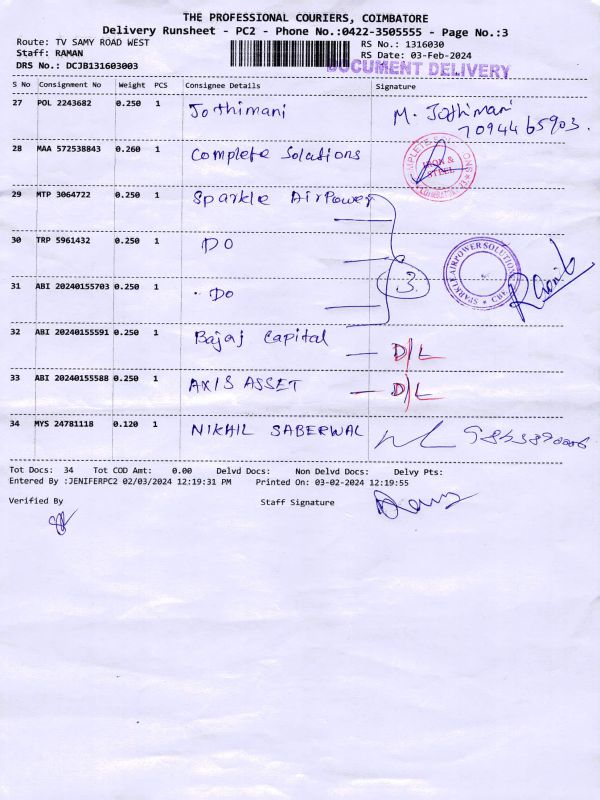 THE PROFESSIONAL COURIERS, COIMBATORE
Delivery Runsheet - PC2 - Phone No.:0422-3505555 - Page No.:3
Route: TV SAMY ROAD WEST RS No.: 1316030
Staff: RAMAN RS Date: 03-Feb-2024
DRS No.: DCJB131603003 DOCUMENT DELIVERY
S No Consignment No Weight PCS Consignee Details Signature
27 POL 2243682 0.250 1 Jothimani M. Jothimani
7094465903.
28 MAA 572538843 0.260 1 Complete Solutions
IRON &
STEEL
29 MTP 3064722 0.250 1 Sparkle AirPower
30 TRP 5961432 0.250 1 DO
SPARKLE AIRPOWER SOLUTION
31 ABI 20240155703 0.250 1 DO 3
32 ABI 20240155591 0.250 1 Bajaj Capital D/L
33 ABI 20240155588 0.250 1 AXIS ASSET D/L
34 MYS 24781118 0.120 1 NIKHIL SABERWAL
Tot Docs: 34 Tot COD Amt: 0.00 Delvd Docs: Non Delvd Docs: Delvy Pts:
Entered By :JENIFERPC2 02/03/2024 12:19:31 PM Printed On: 03-02-2024 12:19:55
Verified By Staff Signature